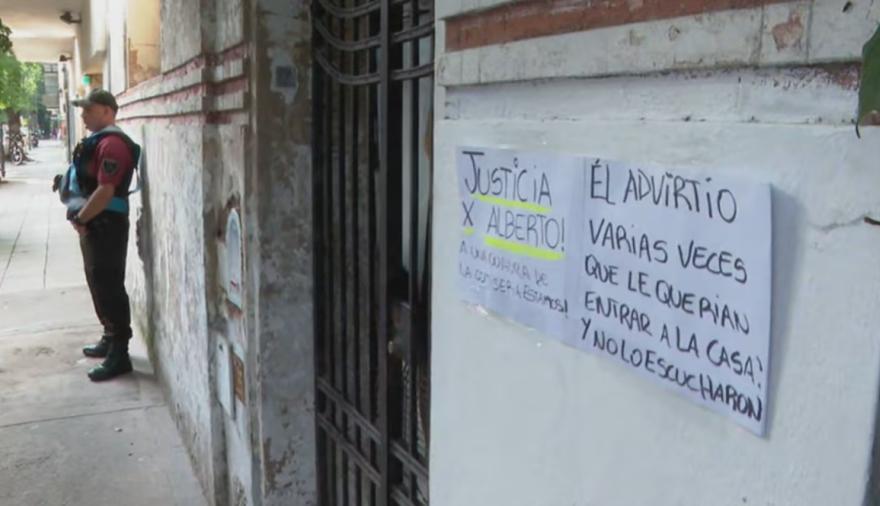 JUSTICIA
X ALBERTO!
A UNA CUADRA DE
LA COMISERIA ESTAMOS!
ÉL ADVIRTIO
VARIAS VECES
QUE LE QUERIAN
ENTRAR A LA CASA?
Y NO LO ESCUCHARON